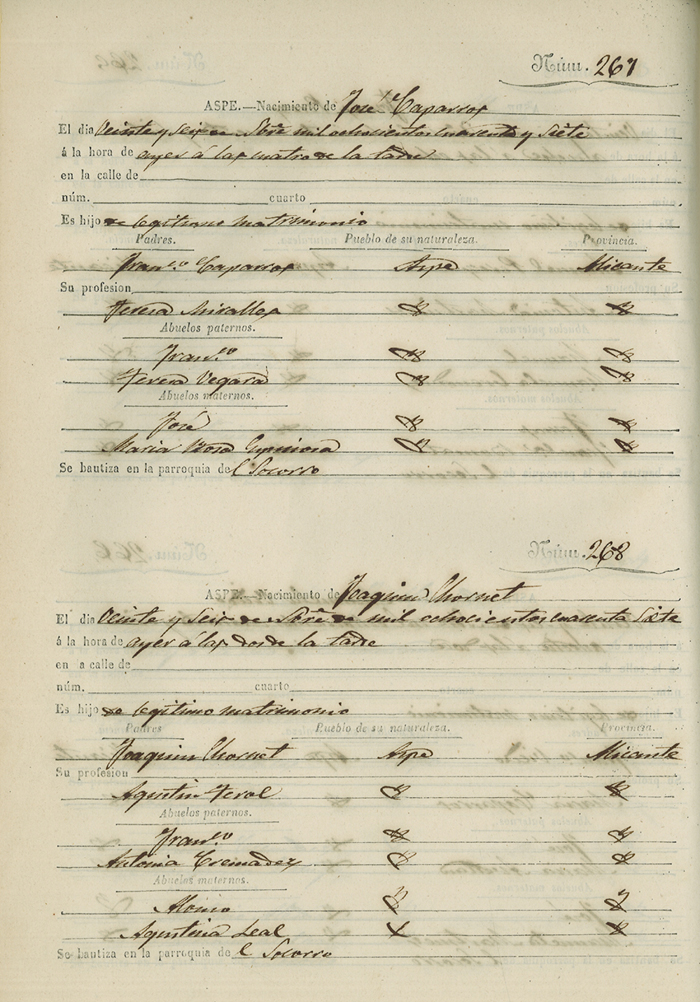 Núm. 267
ASPE.—Nacimiento de José Caparros
El dia Veinte y seis de Sbre mil ochocientos cuarenta y siete
á la hora de ayer á las cuatro de la tarde
en la calle de
núm. cuarto
Es hijo de legitimo matrimonio
Padres. Pueblo de su naturaleza. Provincia.
Fran.co Caparros Aspe Alicante
Su profesion
Teresa Miralles
Abuelos paternos.
Fran.co
Teresa Vegara
Abuelos maternos.
José
Maria Rosa Espinosa
Se bautiza en la parroquia del Socorro
Núm. 268
ASPE.—Nacimiento de Joaquin Chornet
El dia Veinte y seis de Sbre de mil ochocientos cuarenta siete
á la hora de ayer á las dos de la tarde
en a calle de
núm. cuarto
Es hijo de legitimo matrimonio
Padres Pueblo de su naturaleza. Provincia.
Joaquin Chornet Aspe Alicante
Su profesion
Agustin
Abuelos paternos.
Fran.co
Antonia Cremades
Abuelos maternos.
Agustina Leal
Se bautiza en la parroquia de l Socorro